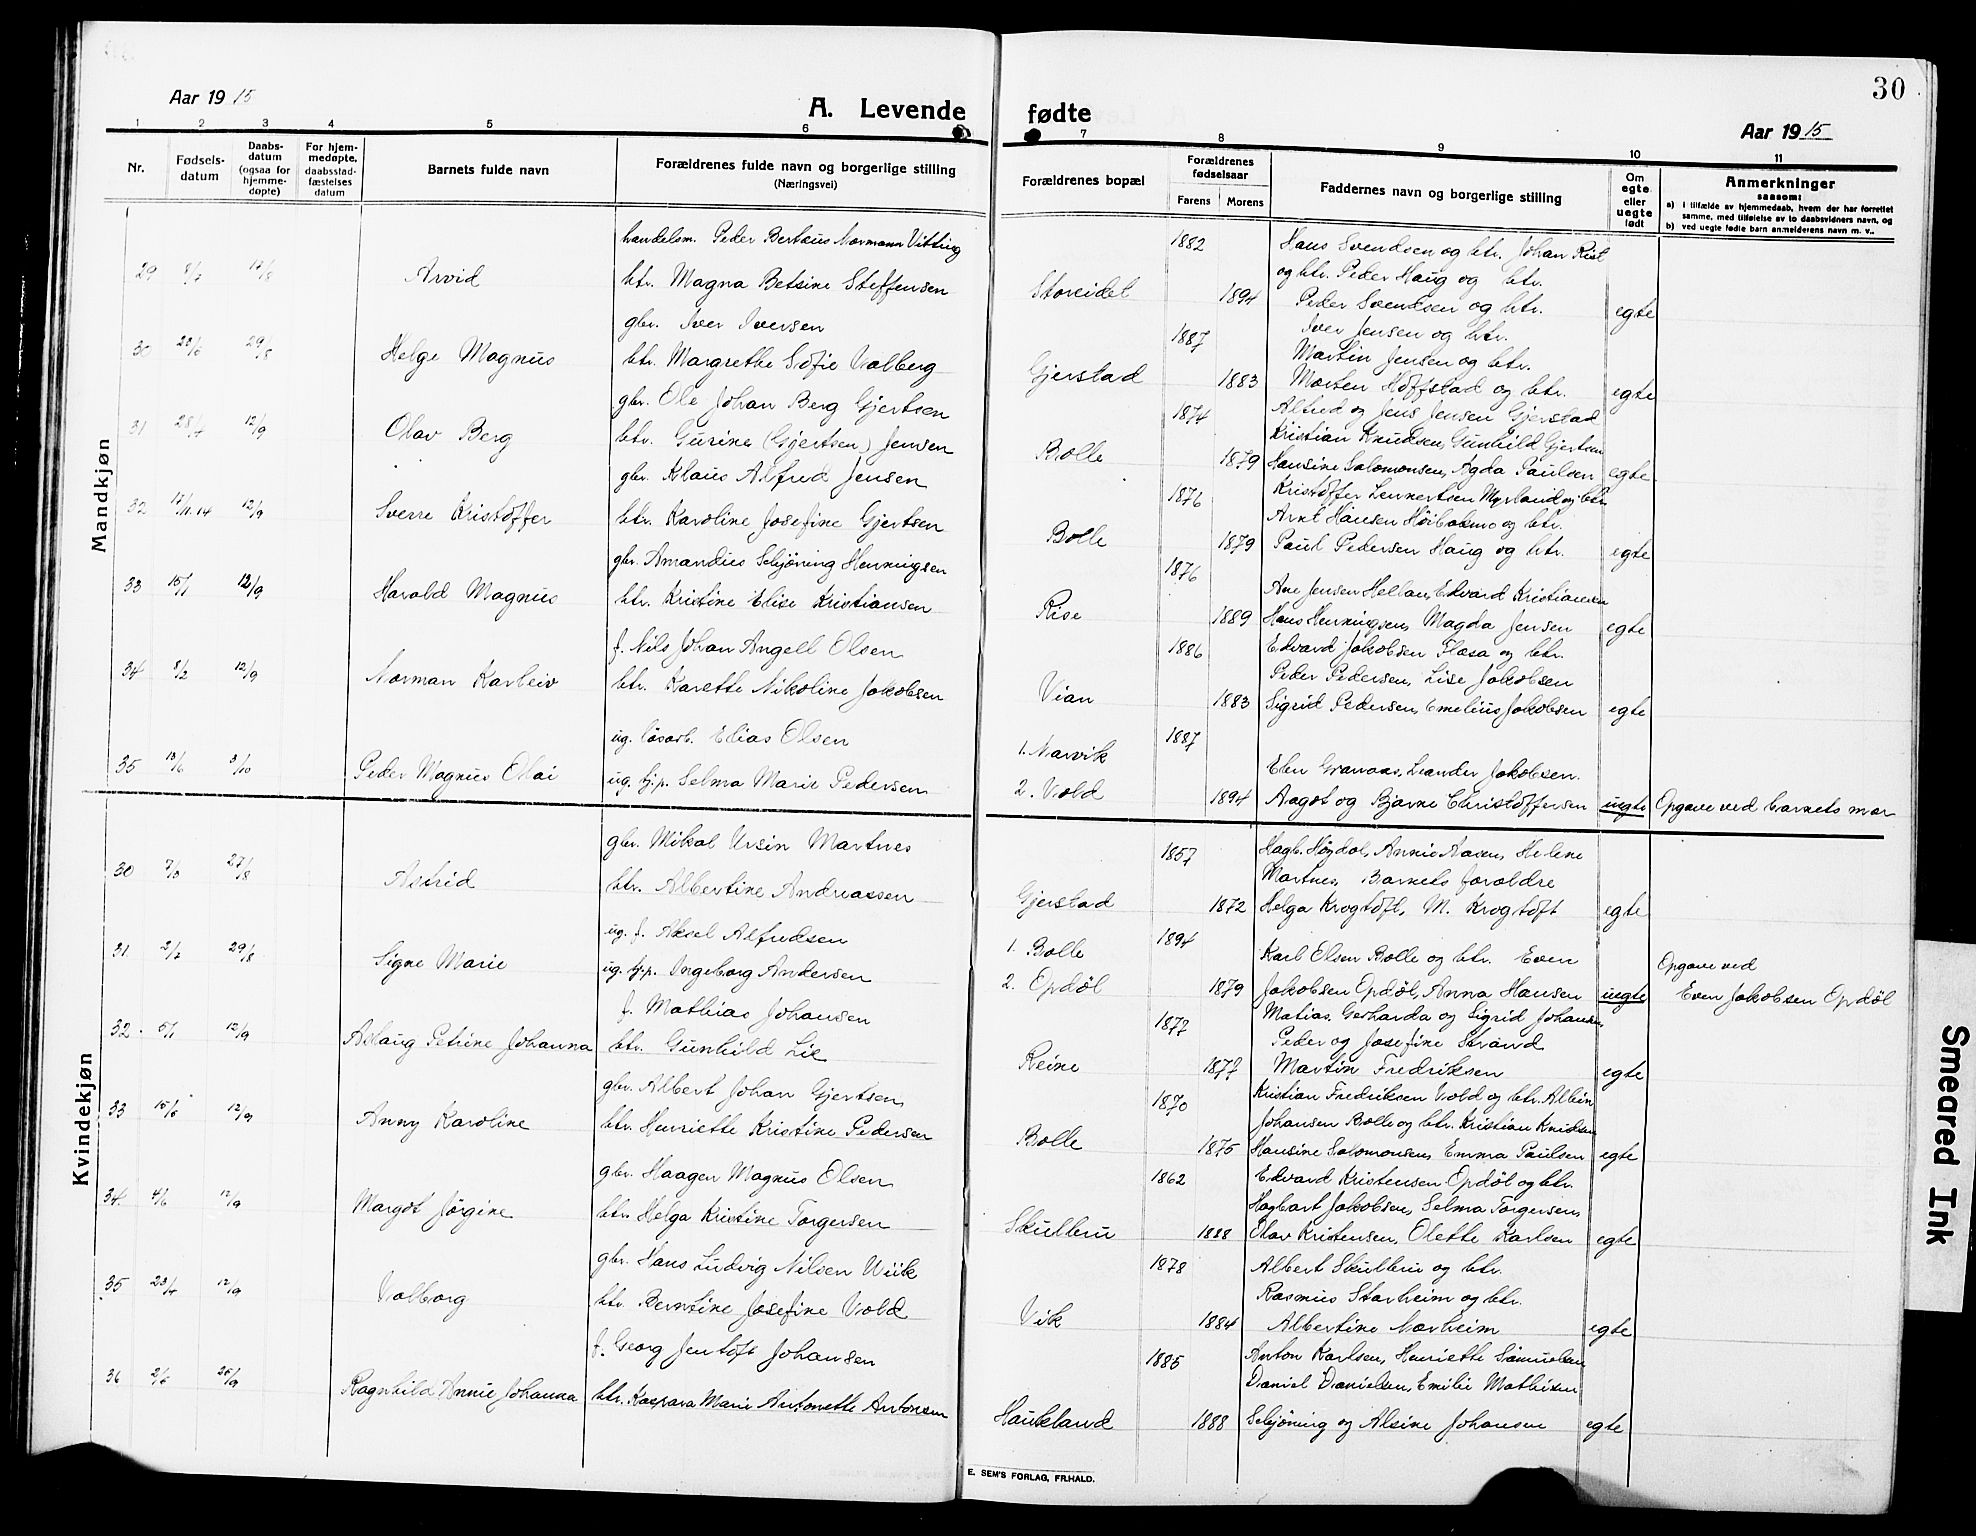 30
Aar 1915
A. Levende fødte
Aar 1915
1 2 3 4 5 6 7 8 9 10 11
Nr.
Fødsels-
datum
Daabs-
datum
(ogsaa for
hjemme-
døpte)
For hjem-
medøpte,
daabsstad-
fæstelses
datum
Barnets fulde navn
Forældrenes fulde navn og borgerlige stilling
(Næringsvei)
Forældrenes bopæl
Forældrenes
fødselsaar
Farens Morens
Faddernes navn og borgerlige stilling
Om
egte
eller
uegte
født
Anmerkninger
saasom:
a) i tilfælde av hjemmedaab, hvem der har forrettet
samme, med tilføielse av to daabsvidners navn, og
b) ved uegte fødte barn anmelderens navn m. v..
Mandkjøn
handelsm. Peder Berteus Normann Vitting 1882 Hans Svendsen og htr. Johan Rist
29 8/7 Arvid htr. Magna Betsine Steffensen Storeidet og htr. Peder Haug og htr.
1894 Peder Svendsen og htr. egte
gbr. Iver Iversen 1887 Iver Jensen og htr.
30 29/8 Helge Magnus htr. Margrethe Sofie Valberg Gjerstad Martin Jensen og htr.
1883 Morten Hoffstad og htr. egte
gbr. Ole Johan Berg Gjertsen 1874 Alfred og Jens Jensen Gjerstad
31 12/9 Olav Berg htr. Gurine (Gjertsen) Jensen Bolle Kristian Knudsen, Gunhild Gjertsen
1879 Hansine Salomonsen, Agda Paulsen egte
gbr. Klaus Alfred Jensen 1876 Kristoffer Lennertsen Myrland og htr.
32 17/11.14 12/9 Sverre Kristoffer htr. Karoline Josefine Gjertsen Bolle Arnt Hansen
1879 Paul Pedersen Haug og htr. egte
gbr. Amandus Schjøning Henningsen 1876
33 15/7 12/9 Harald Magnus htr. Kristine Elise Kristiansen Rise Ane Jensen Hellan, Edvard Kristiansen
1889 Hans Henningsen, Magda Jensen egte
f. Nils Johan Angell Olsen 1886 Edvard Jakobsen Flæsa og htr.
34 8/2 12/9 Norman Karleiv htr. Karette Nikoline Jakobsen Vian Peder Pedersen, Lise Jakobsen
1883 Sigrid Pedersen, Emelius Jakobsen egte
ug. løsarb. Elias Olsen 1. Narvik 1887
35 13/6 3/10 Peder Magnus Olai ug. tj.p. Selma Marie Pedersen 2. Vold Elen Granaas, Leander Jakobsen.
1894 Aagot og Bjarne Christoffersen uegte Opgave ved barnets mor
Kvindekjøn
gbr. Mikal Ursin Martnes 1857 Hagb. Høydal, Annie Aasen, Helene
30 27/8 Astrid htr. Albertine Andreassen Gjerstad Martnes, Barnets forældre
1872 Helga Krogtoft, M. Krogtoft egte
ug. f. Aksel Alfredsen 1. Bolle 1894
31. 2/7 29/8 Signe Marie ug. tj.p. Ingeborg Andersen 2. Opdøl Karl Olsen Bolle og htr. Even Opgave ved
1879 Jakobsen Opdøl, Anna Hansen uegte Even Jakobsen Opdøl
f. Mathias Johansen 1877 Matias, Gerharda og Sigrid Johansen,
32 5/7 12/9 Aslaug Petrine Johanna htr. Gunhild Lie Reine Peder og Josefine Strand
1877 Martin Fredriksen egte
gbr. Albert Johan Gjertsen 1870 Kristian Fredriksen Vold og htr. Albin
33 15/6 12/9 Anny Karoline htr. Henriette Kristine Pedersen Bolle Johansen Bolle og htr. Kristian Knudsen
1875 Hansine Salomonsen, Emma Paulsen egte
gbr. Haagen Magnus Olsen 1862 Edvard Kristensen Opdøl og htr.
34 4/6 12/9 Margot Jørgine htr. Helga Kristine Torgersen Skulbru Hagbart Jakobsen, Selma Torgersen,
1888 Olav Kristensen, Olette Karlsen egte
gbr. Hans Ludvig Nilsen Wiik 1878 Albert Skulbru og htr.
35 23/4 12/9 Valborg htr. Berntine Josefine Vold Vik Rasmus Storheim og htr.
1884 Albertine Norheim egte
f. Georg Jentoft Johansen 1885 Anton Karlsen, Henriette Samuelsen
36 2/6 26/9 Ragnhild Annie Johanna htr. Kaspara Marie Antonette Antonsen Haukland Daniel Danielsen, Emilie Mathisen
1888 Schjøning og Alsine Johansen egte
E. SEM'S FORLAG, FR.HALD.
Smeared Ink